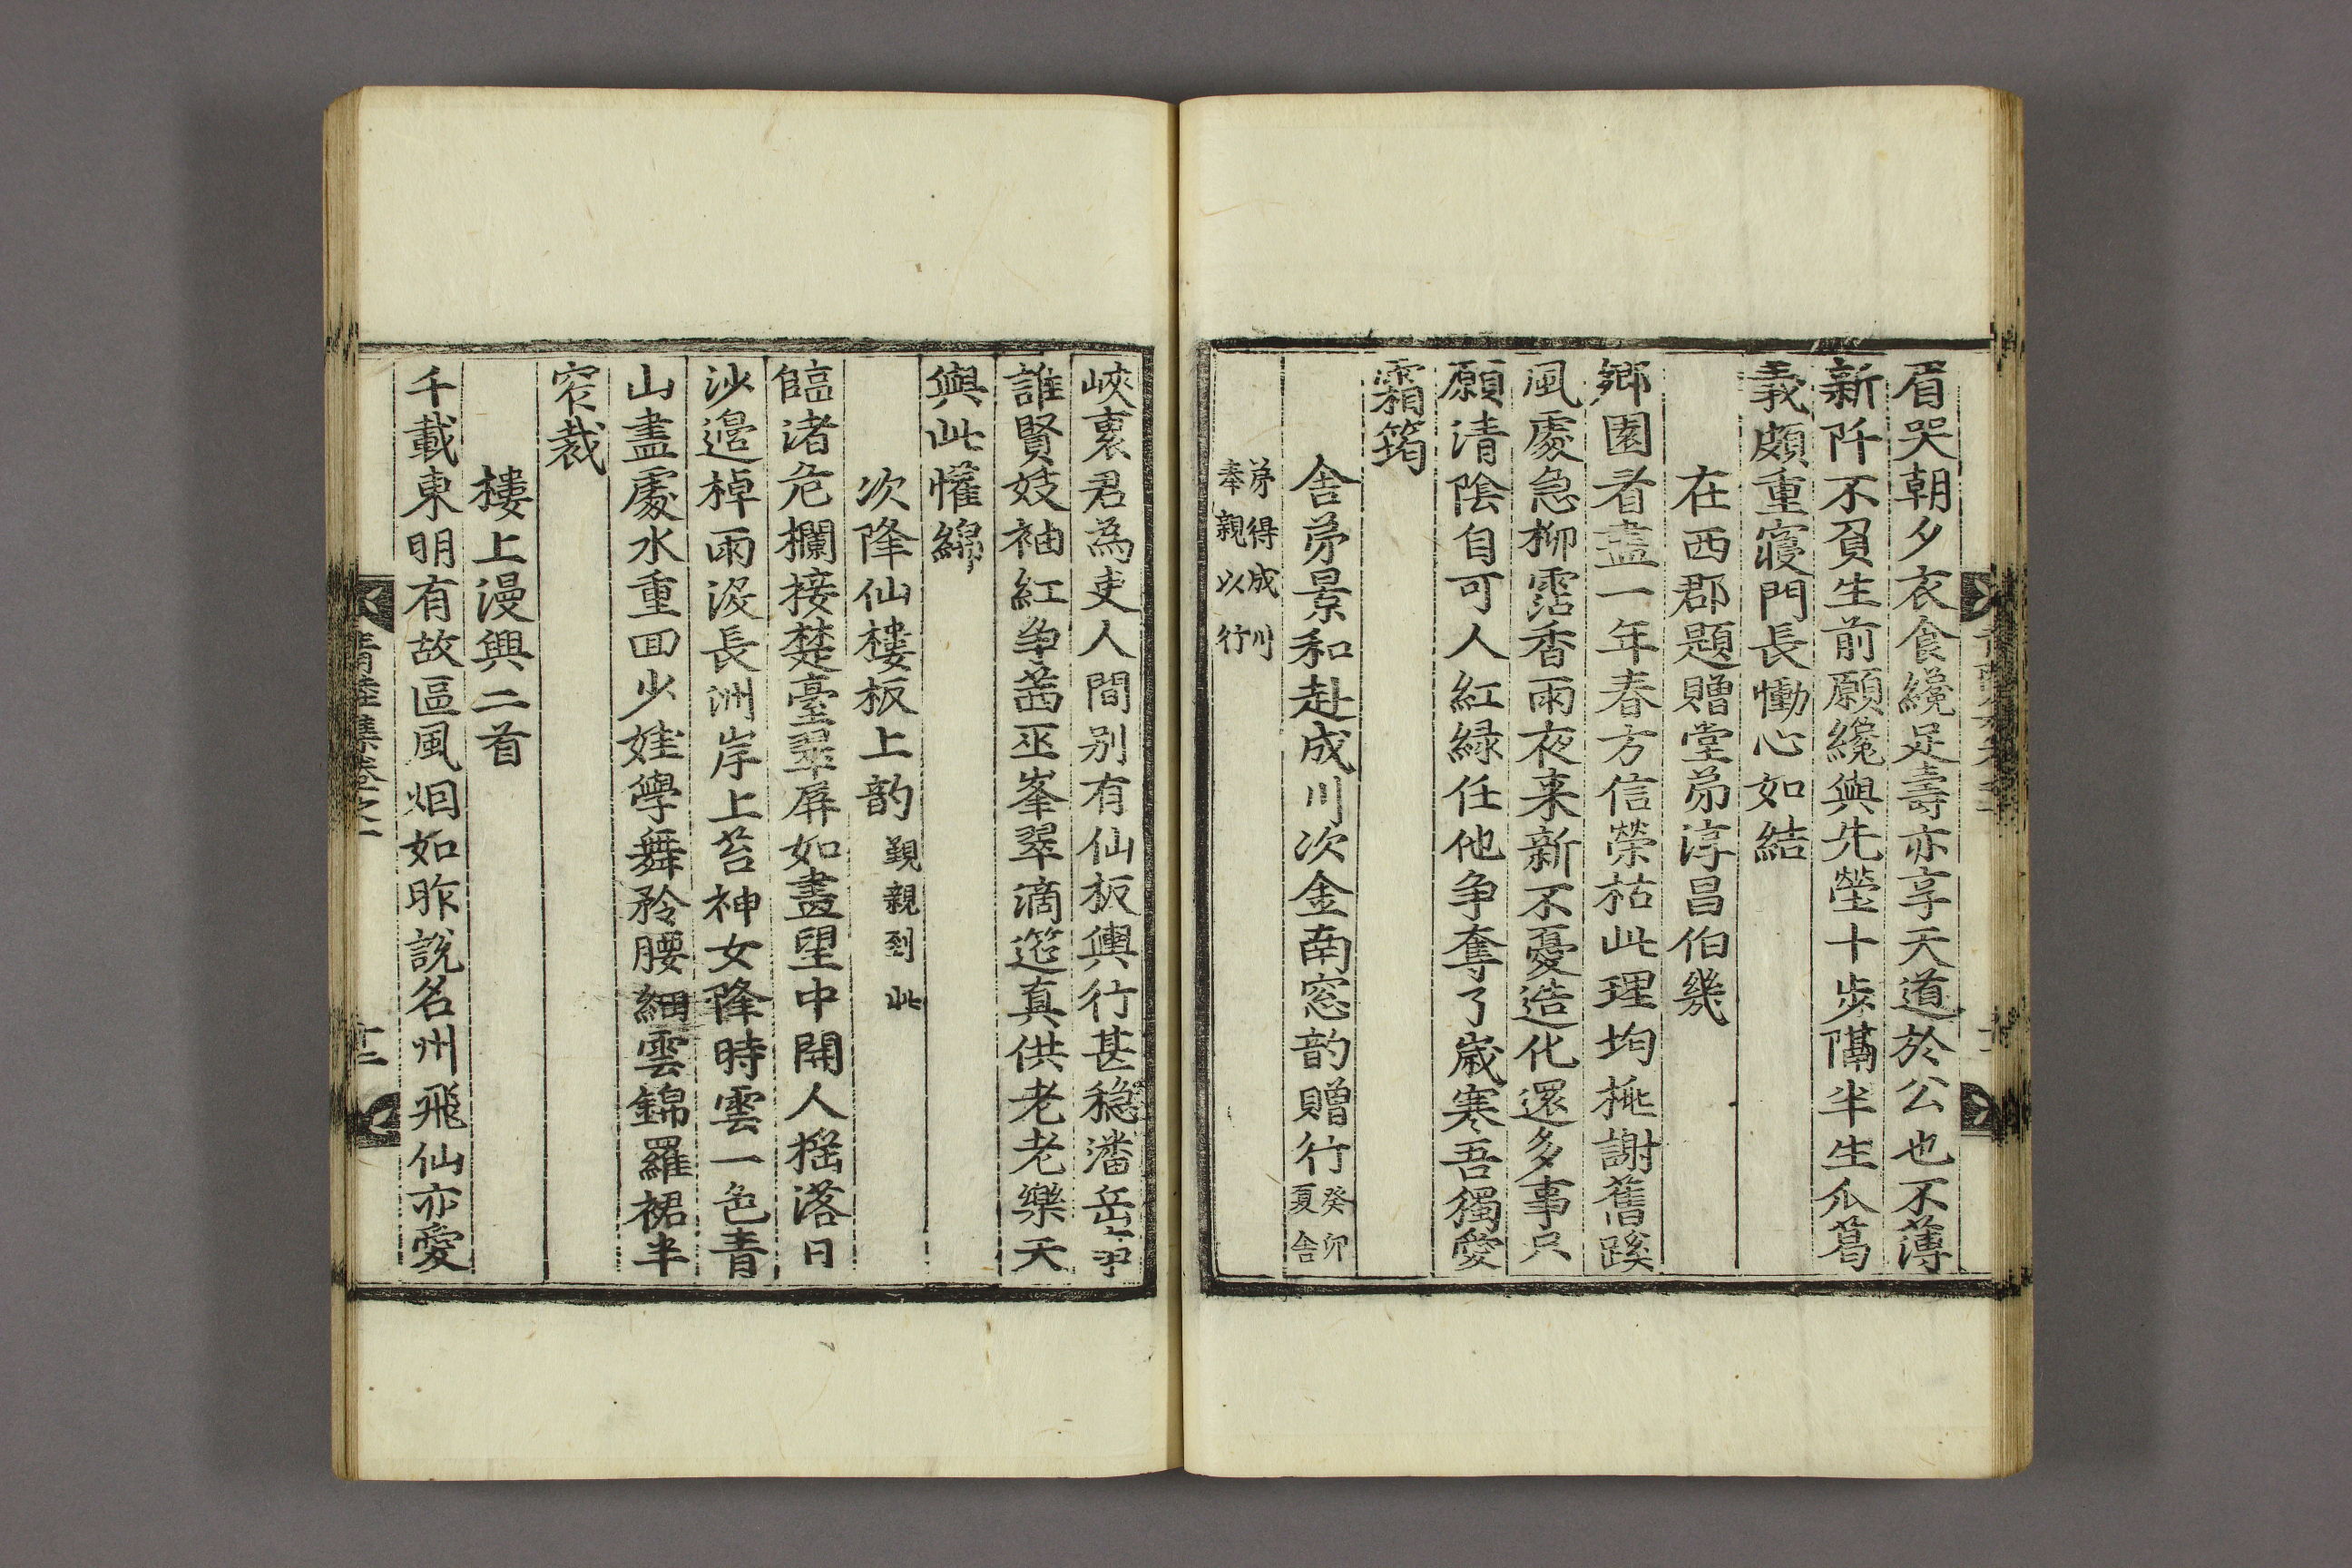 眉哭朝夕衣食纔足壽亦享天道於公也不薄
新阡不負生前願纔與先塋十步隔半生瓜葛
義頗重寢門長慟心如結
在西郡題贈堂弟淳昌伯幾
鄉園看盡一年春方信榮枯此理均桃謝舊蹊
風處急柳霑香雨夜来新不憂造化還多事只
願清陰自可人紅綠任他争奪了歲寒吾獨愛
霜筠
舍弟景和赴成川次金南窓韵贈行癸卯夏舍
弟得成川奉親以行
峽裏君為吏人間别有仙板輿行甚穏潘岳尹
誰賢妓袖紅争茜巫峯翠滴筵真供老老樂天
與此懽綿
次降仙樓板上韵覲親到此
臨渚危欄接楚臺翠屏如畵望中開人揺落日
沙邉棹雨没長洲岸上苔神女降時雲一色青
山盡處水重回少娃學舞矜腰細雲錦羅裙半
窄裁
樓上漫興二首
千載東明有故區風烟如昨說名州飛仙亦愛
青陸集卷之一
十二